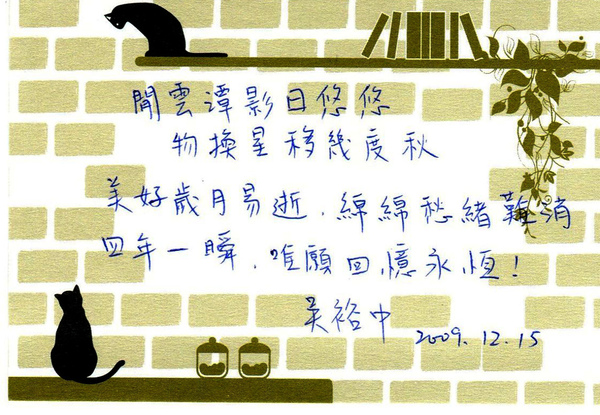 閒雲潭影日悠悠
物換星移幾度秋
美好歲月易逝,綿綿愁緒難消
四年一瞬,唯願回憶永恆!
裕中 2009.12.15